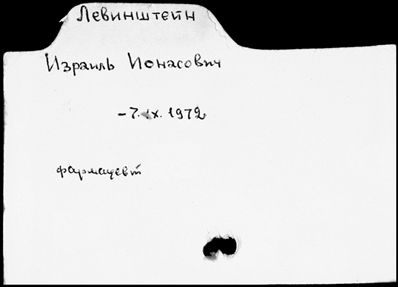 Левинштейн
Израиль Ионасович
-7.IX.1972
фармацевт